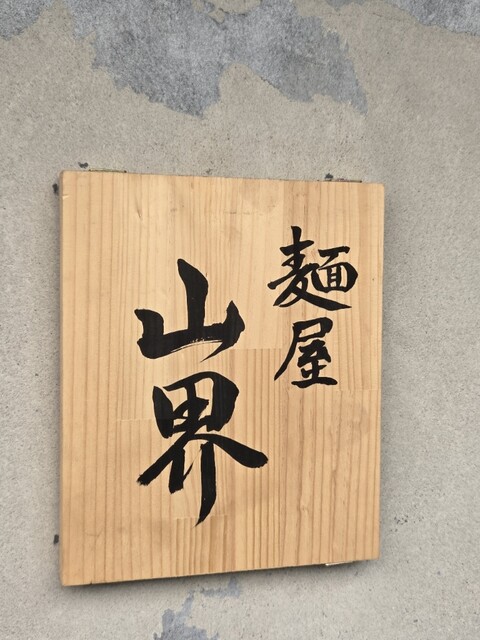 麺屋
山界